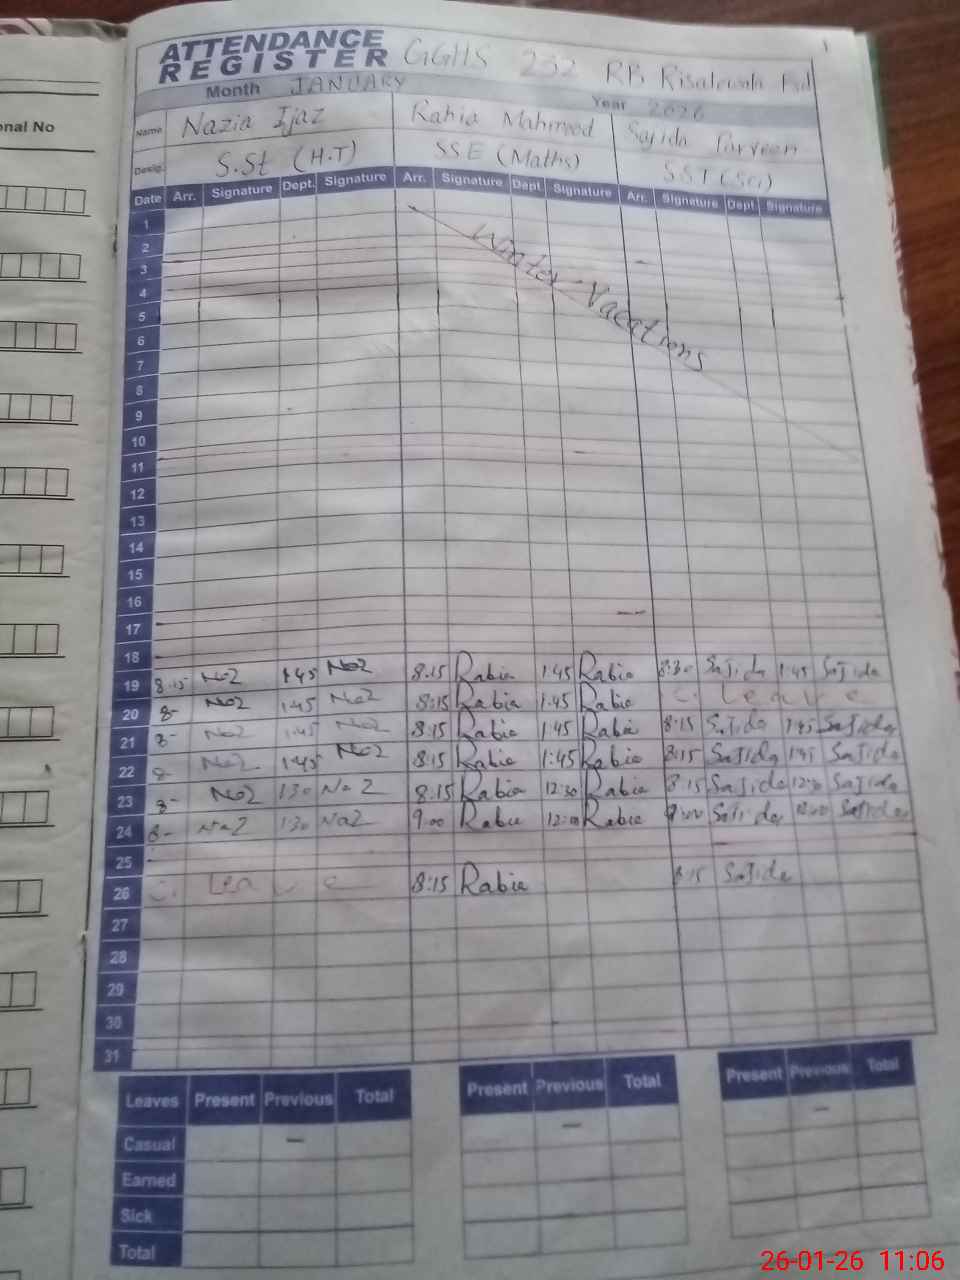 onal No
ATTENDANCE REGISTER GGHS 232 RB Risalewala Fsd
Month JANUARY Year 2026
Name Nazia Ijaz Rabia Mahmood Sajida Parveen
Desig. S.St (H.T) SSE (Maths) SST (Sci)
Date Arr. Signature Dept. Signature Arr. Signature Dept. Signature Arr. Signature Dept. Signature
1
2
3
4
5
6
7
8
9
10
11
12
13
14
15
16
17
18
Winter Vacations
19 8.15 Naz 1:45 Naz 8.15 Rabia 1:45 Rabia 8:30 Sajida 1:45 Sajida
20 8- Naz 1:45 Naz 8:15 Rabia 1:45 Rabia C. Leave
21 8- Naz 1:45 Naz 8:15 Rabia 1:45 Rabia 8:15 Sajida 1:45 Sajida
22 8- Naz 1:45 Naz 8:15 Rabia 1:45 Rabia 8:15 Sajida 1:45 Sajida
23 8- Naz 1:30 Naz 8:15 Rabia 12:30 Rabia 8:15 Sajida 12:30 Sajida
24 8- Naz 1:30 Naz 9:00 Rabia 12:00 Rabia 9:00 Sajida 12:00 Sajida
25
26 C. Leave 8:15 Rabia 8:15 Sajida
27
28
29
30
31
Leaves Present Previous Total Present Previous Total Present Previous Total
Casual – – –
Earned
Sick
Total
26-01-26 11:06